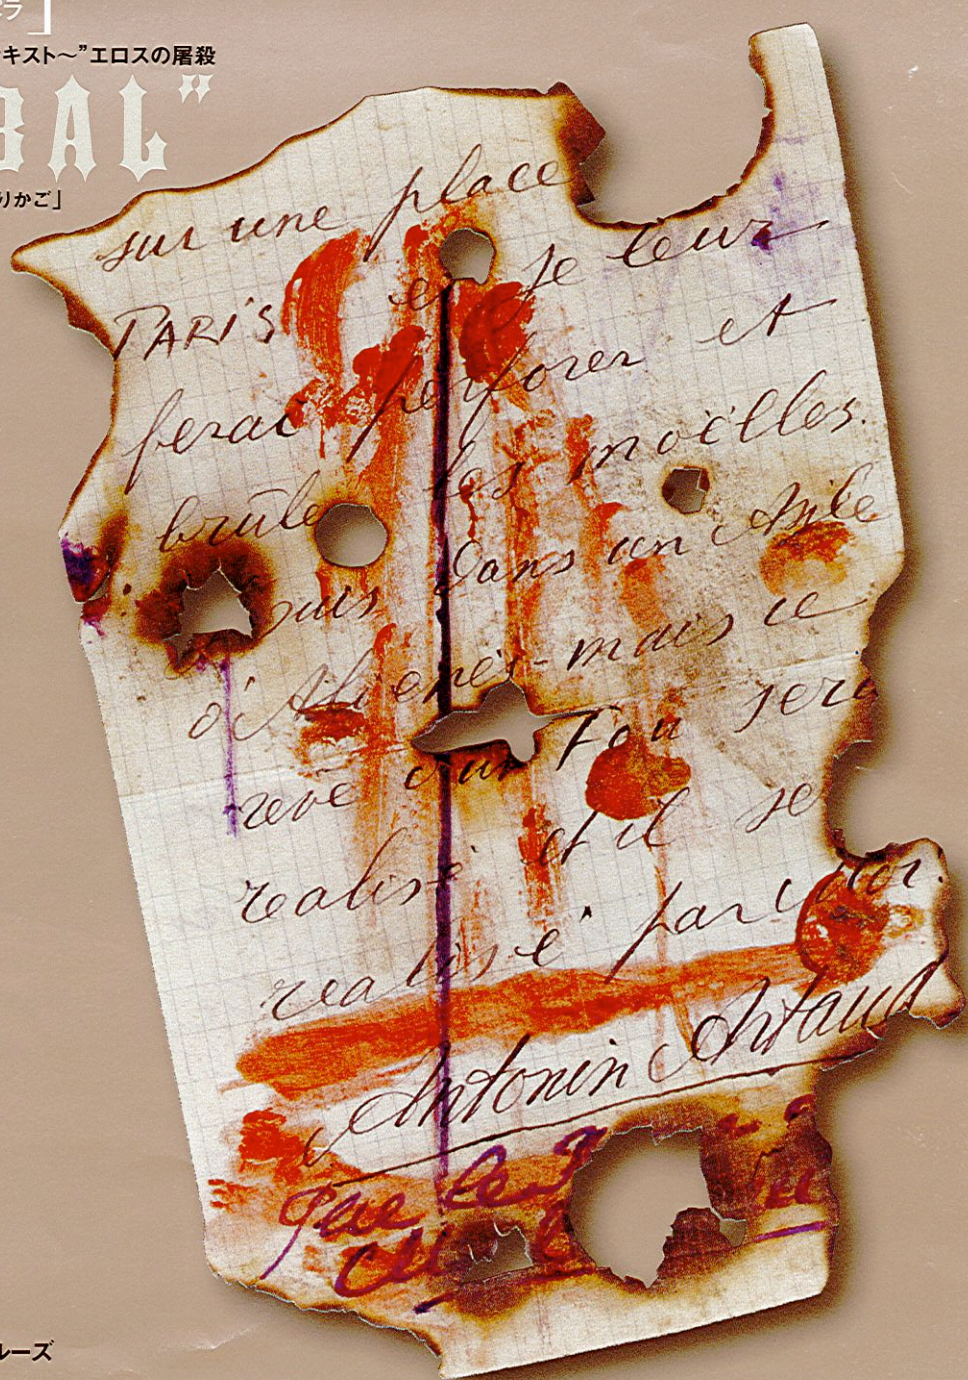 ラ]
キスト～”エロスの屠殺
BAL”
りかご」
sur une place
PARIS et je leur
ferai perforer et
brûle les moëlles.
suis dans un Asile
d'Aliénés - mais ce
reve d'un Fou sera
realisé et il se
realisé par moi.
Antonin Artaud
Que le
ルーズ